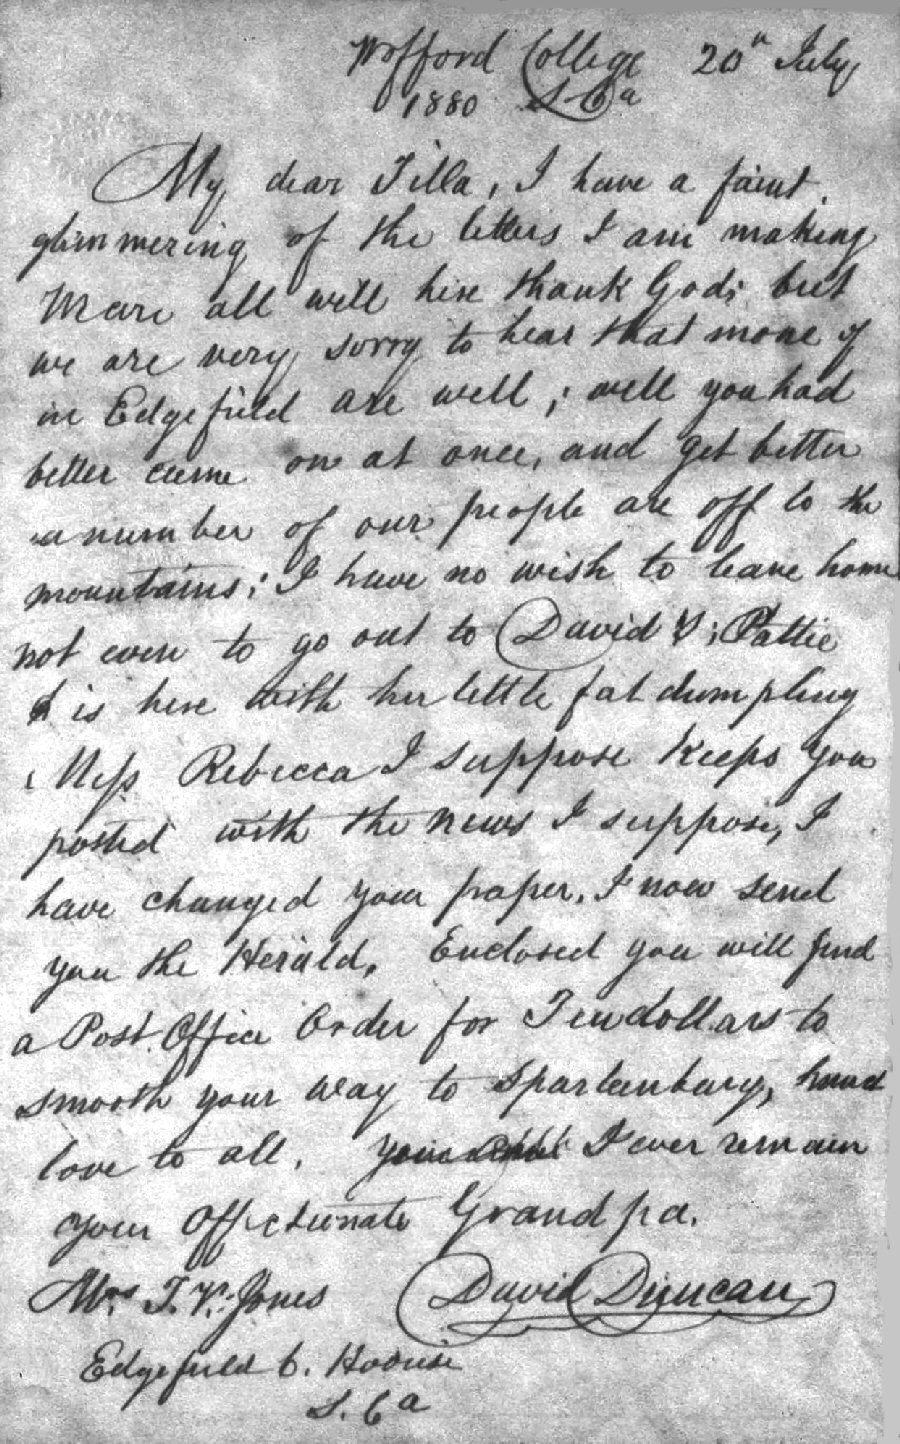 Wofford College 20th July
1880 S. Ca
My dear Tilla, I have a faint
glimmering of the letters I am making
We are all well here thank God; but
we are very sorry to hear that none of
in Edgefield are well; well you had
better come on at once, and get better
a number of our people are off to the
mountains; I have no wish to leave home
not even to go out to David's; Pattie
is here with her little fat dumpling
Miss Rebecca I suppose keeps you
posted with the news I suppose, I
have changed your paper, I now send
you the Herald. Enclosed you will find
a Post Office Order for Ten dollars to
smooth your way to Spartanburg,
love to all. I ever remain
your Affectionate Grandpa.
Mrs. T. V. Jones David Duncan
Edgefield C. House
S. Ca